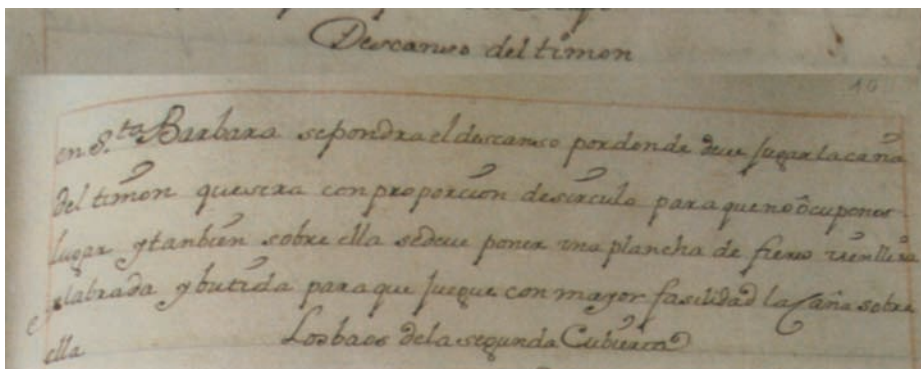 Descanso del timon
10
en S.ta Barbara sepondra el descanso por donde deue jugar la caña
del timon que sera con proporcion de sirculo para que no ôcupe
lugar y tanbien sobre ella se deue poner vna plancha de fierro
labrada y butida para que juegue con mayor fasilidad la Caña sobre
ella
Los baos de la segunda Cubierta